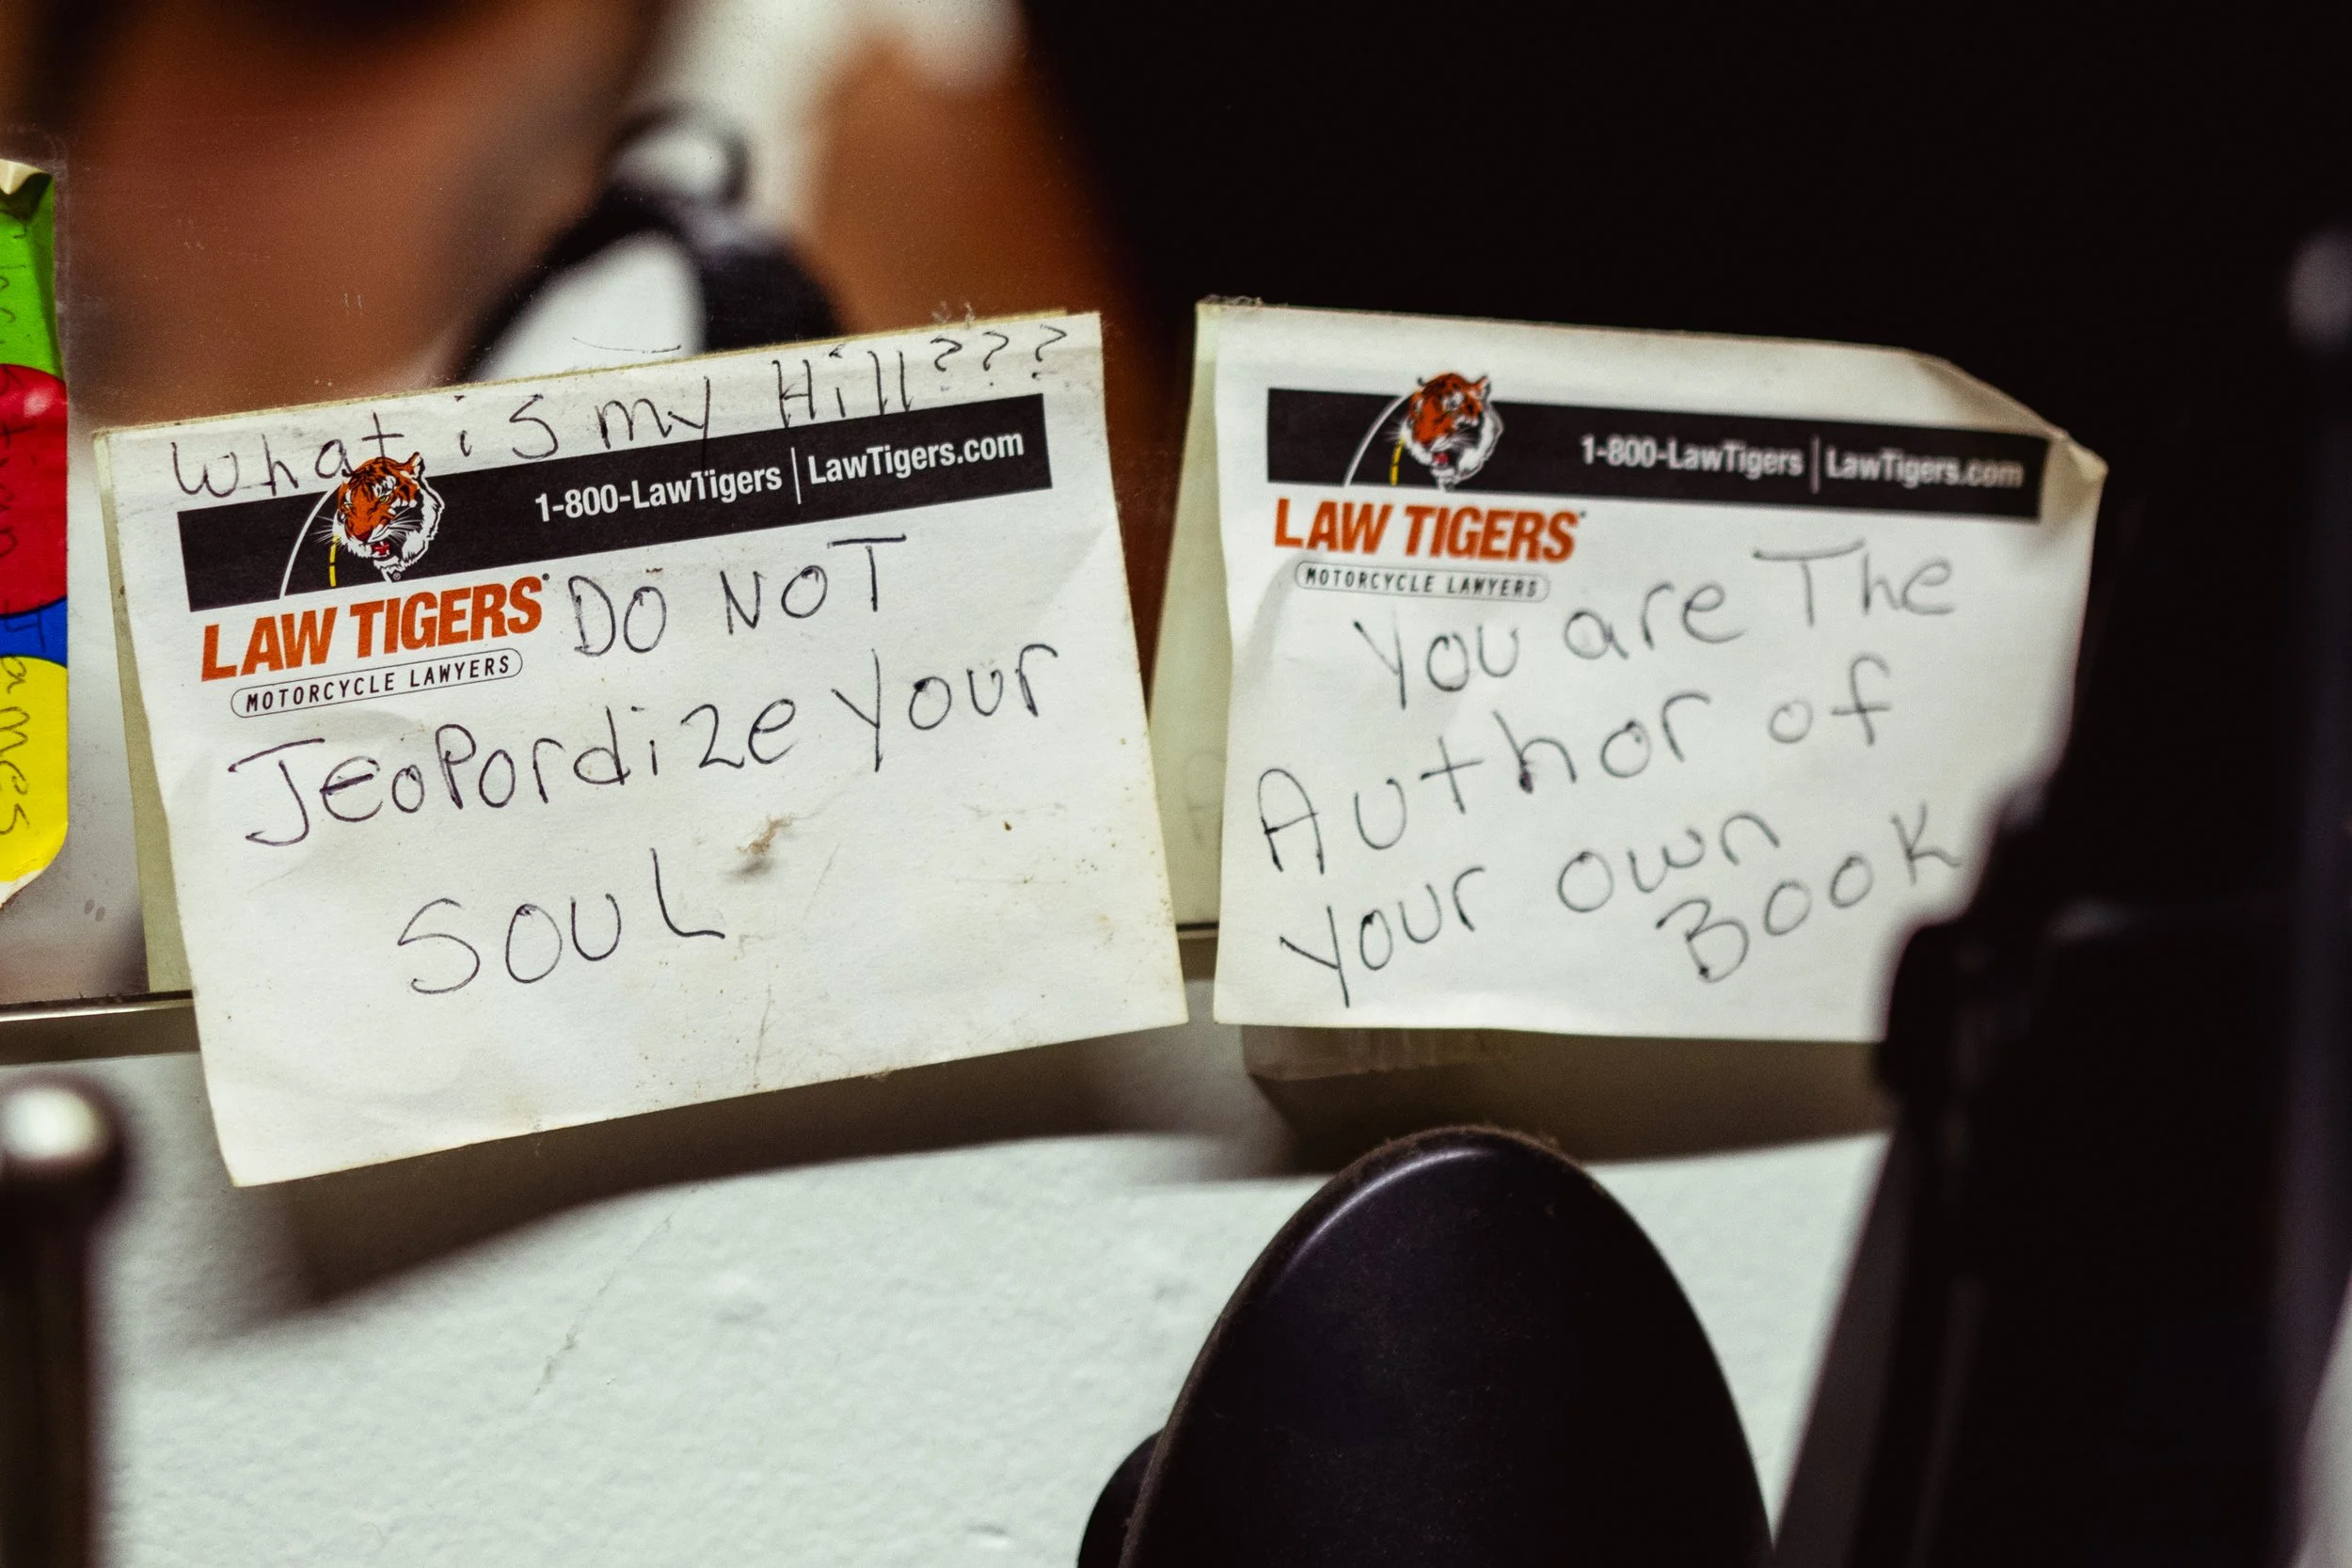 What is my Hill???
1-800-LawTigers | LawTigers.com
LAW TIGERS
MOTORCYCLE LAWYERS
DO NOT
Jeopordize your
SOUL
1-800-LawTigers | LawTigers.com
LAW TIGERS
MOTORCYCLE LAWYERS
You are The
Author of
your own
Book